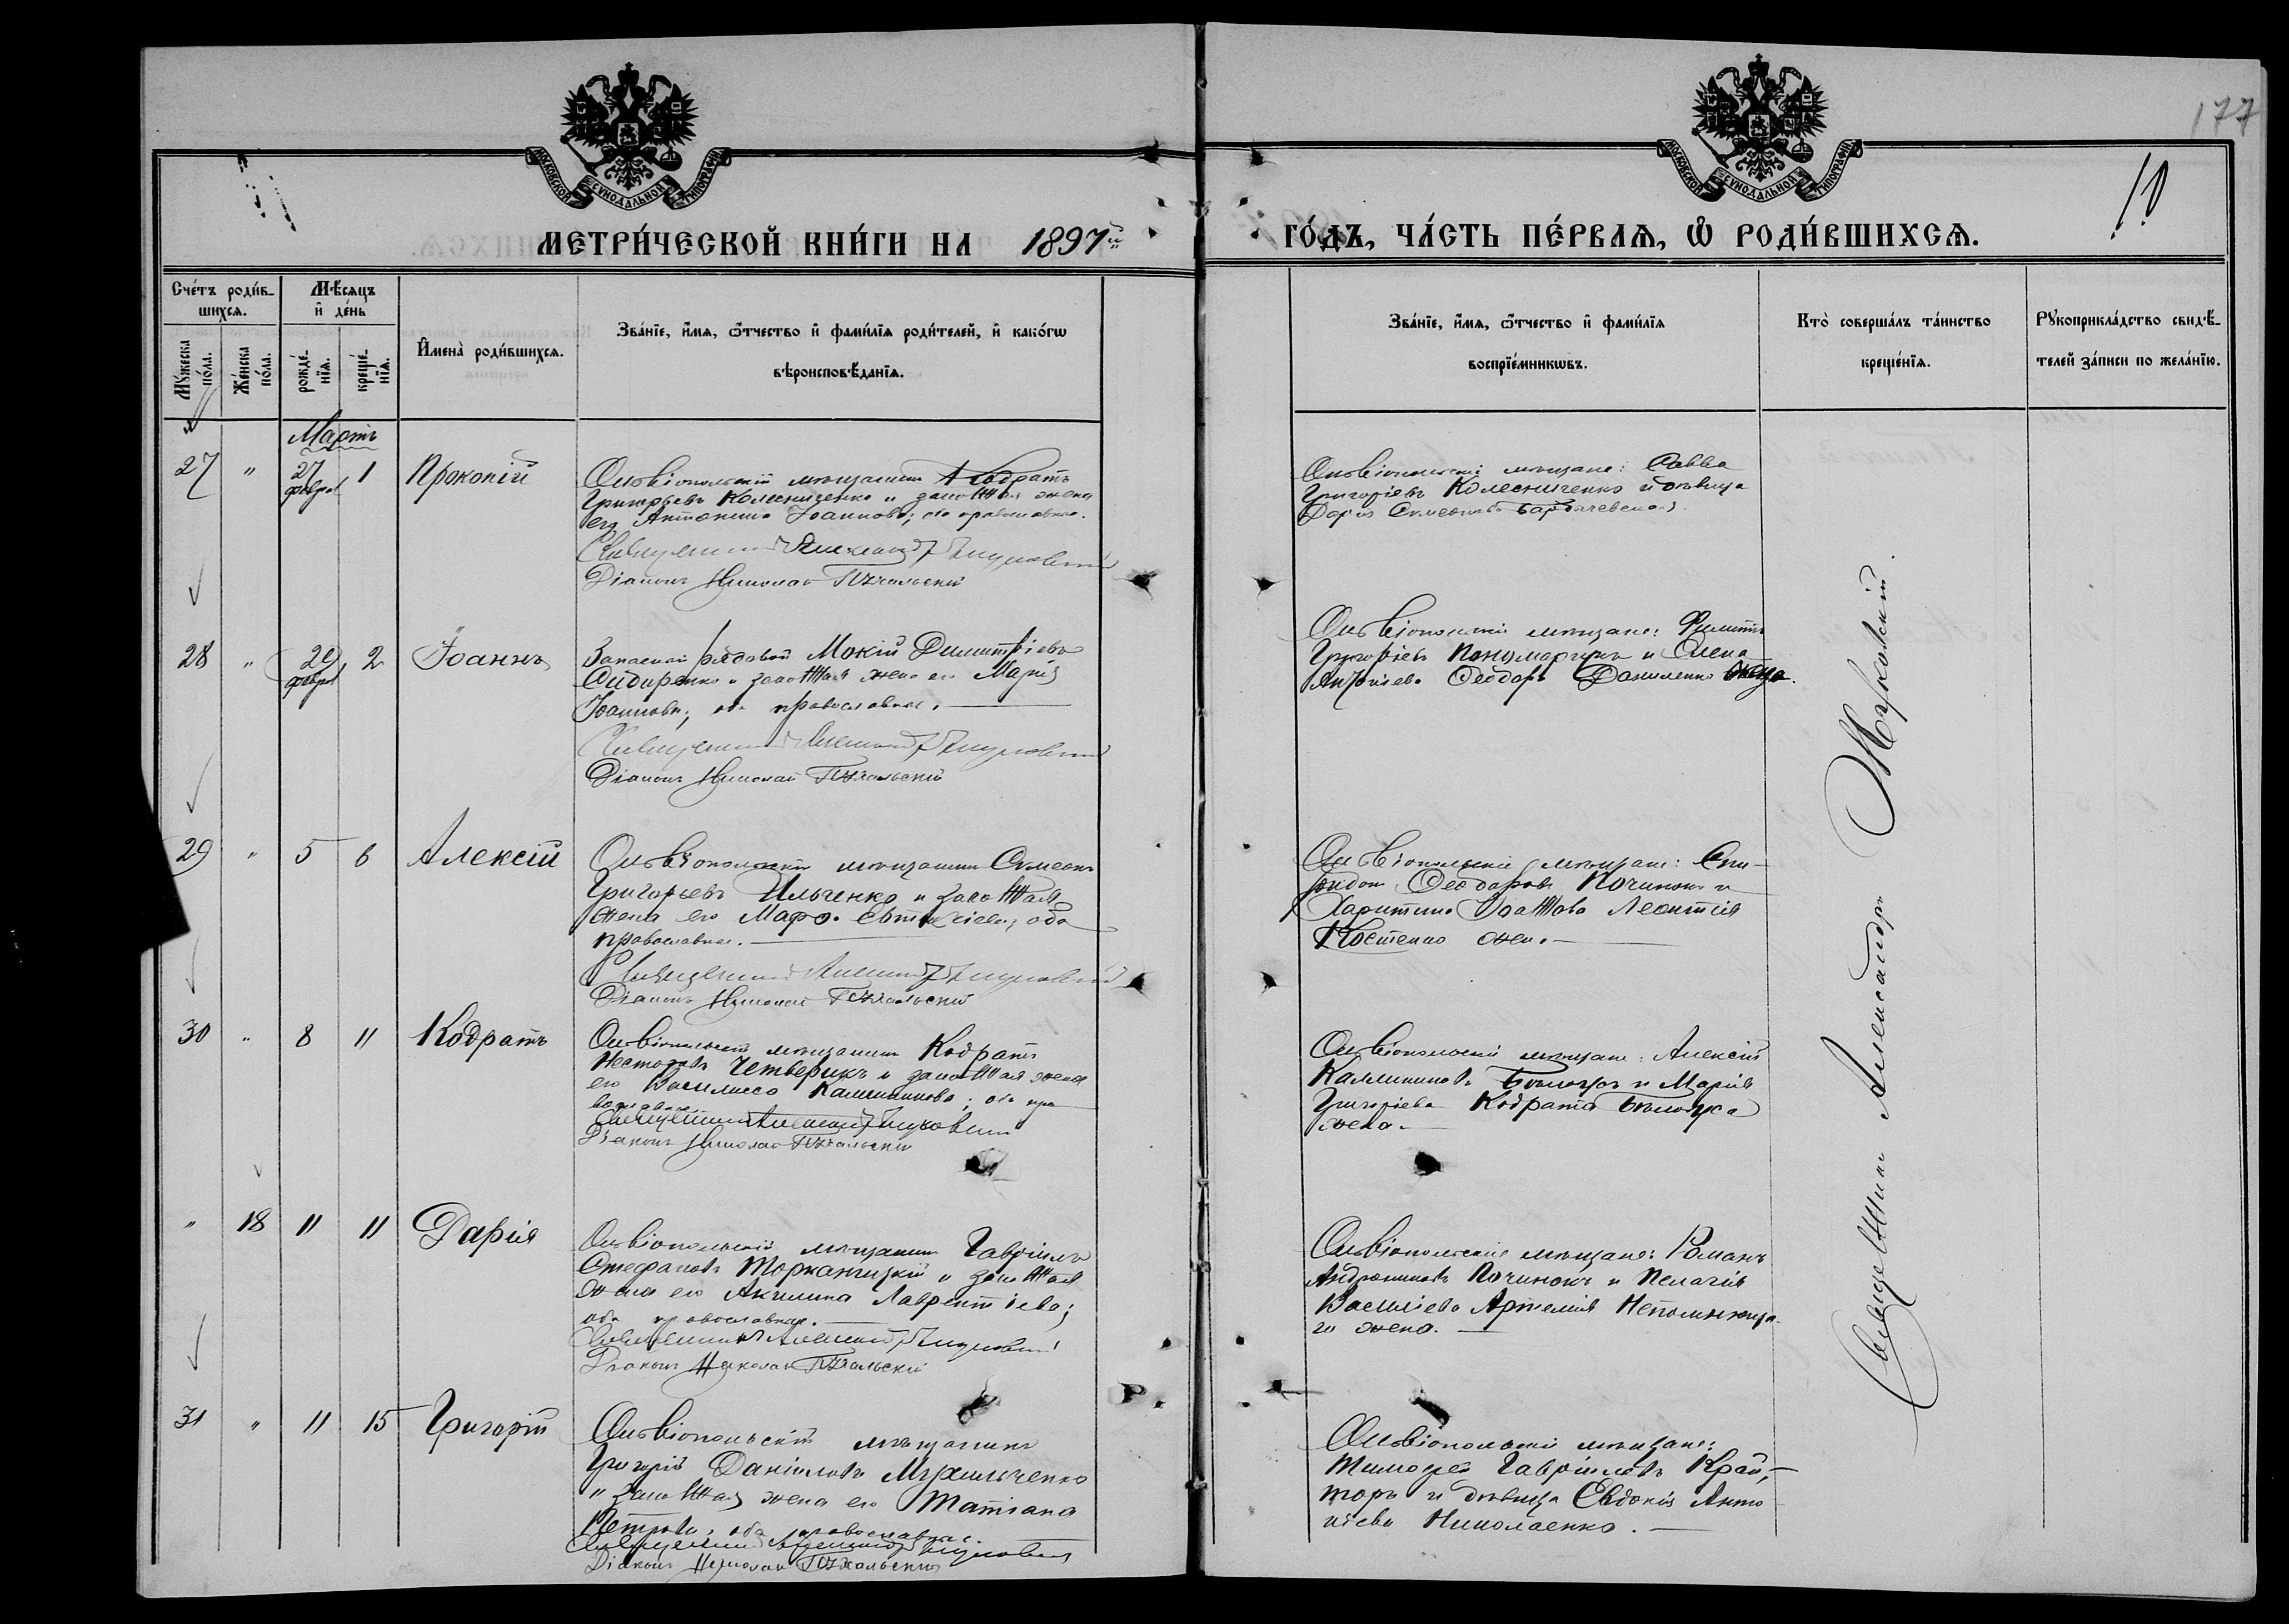 177
10
МОСКОВСКОЙ СУНОДАЛЬНОЙ ТИПОГРАФІИ
МОСКОВСКОЙ СУНОДАЛЬНОЙ ТИПОГРАФІИ
МЕТРИ́ЧЕСКОЙ КНИ́ГИ НА 1897й
ГО́ДЪ, ЧА́СТЬ ПЕ́РВАѦ, Ѡ РОДИ́ВШИХСѦ.
Сче́тъ роди́в-
шихсѧ.
Мꙋ́жеска по́ла.
Же́нска по́ла.
Мѣ́сѧцъ
и҆ де́нь
рожде́-
нїѧ.
креще́-
нїѧ.
И҆мена̀ роди́вшихсѧ.
Зва́нїе, и҆́мѧ, ѻ҆́тчество и҆ фами́лїѧ роди́телей, и҆ како́гѡ
вѣроисповѣ́данїѧ.
Зва́нїе, и҆́мѧ, ѻ҆́тчество и҆ фами́лїѧ
воспрїе́мникѡвъ.
Кто̀ соверша́лъ та́инство
креще́нїѧ.
Рꙋкоприкла́дство свидѣ́-
телей за́писи по жела́нїю.
Мартъ
27 " 27 феврал 1 Прокопій
Ольвіопольскій мѣщанинъ Кодратъ
Григорьевъ Колесниченко и законная жена
его Антонина Іоаннова; оба православные.
Священникъ Александръ Жуковскій
Діаконъ Николай
Ольвіопольскіе мѣщане: Савва
Григоріевъ Колесниченко и дѣвица
Дарія Симеонова
28 " 29 феврал 2 Іоаннъ
Запасной рядовой Мокій Димитріевъ
Сидоренко и законная жена его Марія
Іоаннова; оба православные.
Священникъ Александръ Жуковскій
Діаконъ Николай
Ольвіопольскіе мѣщане: Филиппъ
Григоріевъ Пономарчукъ и Елена
Ѳеодора Даниленко жена.
29 " 5 6 Алексій
Ольвіопольскій мѣщанинъ Симеонъ
Григорьевъ Ильченко и законная
жена его Марѳа Евтихіева; оба
православные.
Священникъ Александръ Жуковскій
Діаконъ Николай
Ольвіопольскіе мѣщане: Спи-
ридонъ Ѳеодоровъ Починокъ и
Харитина Леонтія
Костенко жена.
30 " 8 11 Кодратъ
Ольвіопольскій мѣщанинъ Кодратъ
Несторовъ Четверикъ и законная жена
его Василисса Каллиникова; оба пра
вославные.
Священникъ Александръ Жуковскій
Діаконъ Николай
Ольвіопольскіе мѣщане: Алексій
Каллиниковъ Бѣлоусъ и Марія
Григоріева Кодрата Бѣлоуса
жена.
" 18 11 11 Дарія
Ольвіопольскій мѣщанинъ Гавріилъ
Стефановъ и законная
жена его Акилина Лаврентіева;
оба православные.
Священникъ Александръ Жуковскій
Діаконъ Николай
Ольвіопольскіе мѣщане: Романъ
Андрониковъ Починокъ и Пелагія
Василіева Артемія Непомнюща-
го жена.
31 " 11 15 Григорій
Ольвіопольскій мѣщанинъ
Григорій Даніиловъ Михильченко
и законная жена его Татіана
Петрова, оба православные.
Священникъ Александръ Жуковскій
Діаконъ Николай
Ольвіопольскіе мѣщане:
Тимоѳей Гавріиловъ
и дѣвица Евдокія Анто
ніева Николаенко.
Священникъ Александръ Жуковскій.